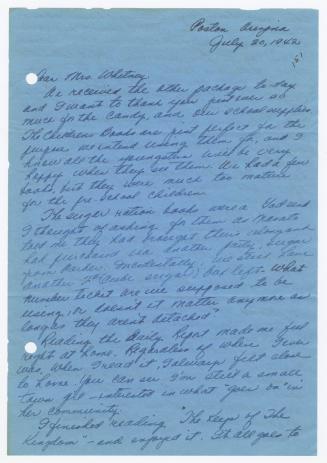 Poston Arizona
July 20, 1942
Dear Mrs. Whitney,
We received the other package to-day
and I want to thank you just ever so
much for the candy, and our school supplies.
The childrens books are just perfect for the
purpose we intend using them for, and I
know all the youngsters will be very
happy when they see them. We had a few
books, but they were much too mature
for the pre-school children.
The sugar ration books were a
I thought of asking for them as
told me they had brought theirs along and
had purchased via another party, sugar
from Parker. Incidentally, we still have
another (cube sugar) box left. What
number ticket are we supposed to be
using, or doesn't it matter anymore as
long as they aren't detached"
Reading the Daily Report made me feel
right at home. Regardless of where I ever
was, when I read it, I always felt close
to home. You can see I'm still a small
town girl - interested in what "goes on" in
her community.
I finished reading "The Keys of The
Kingdom" - and enjoyed it. It all goes to